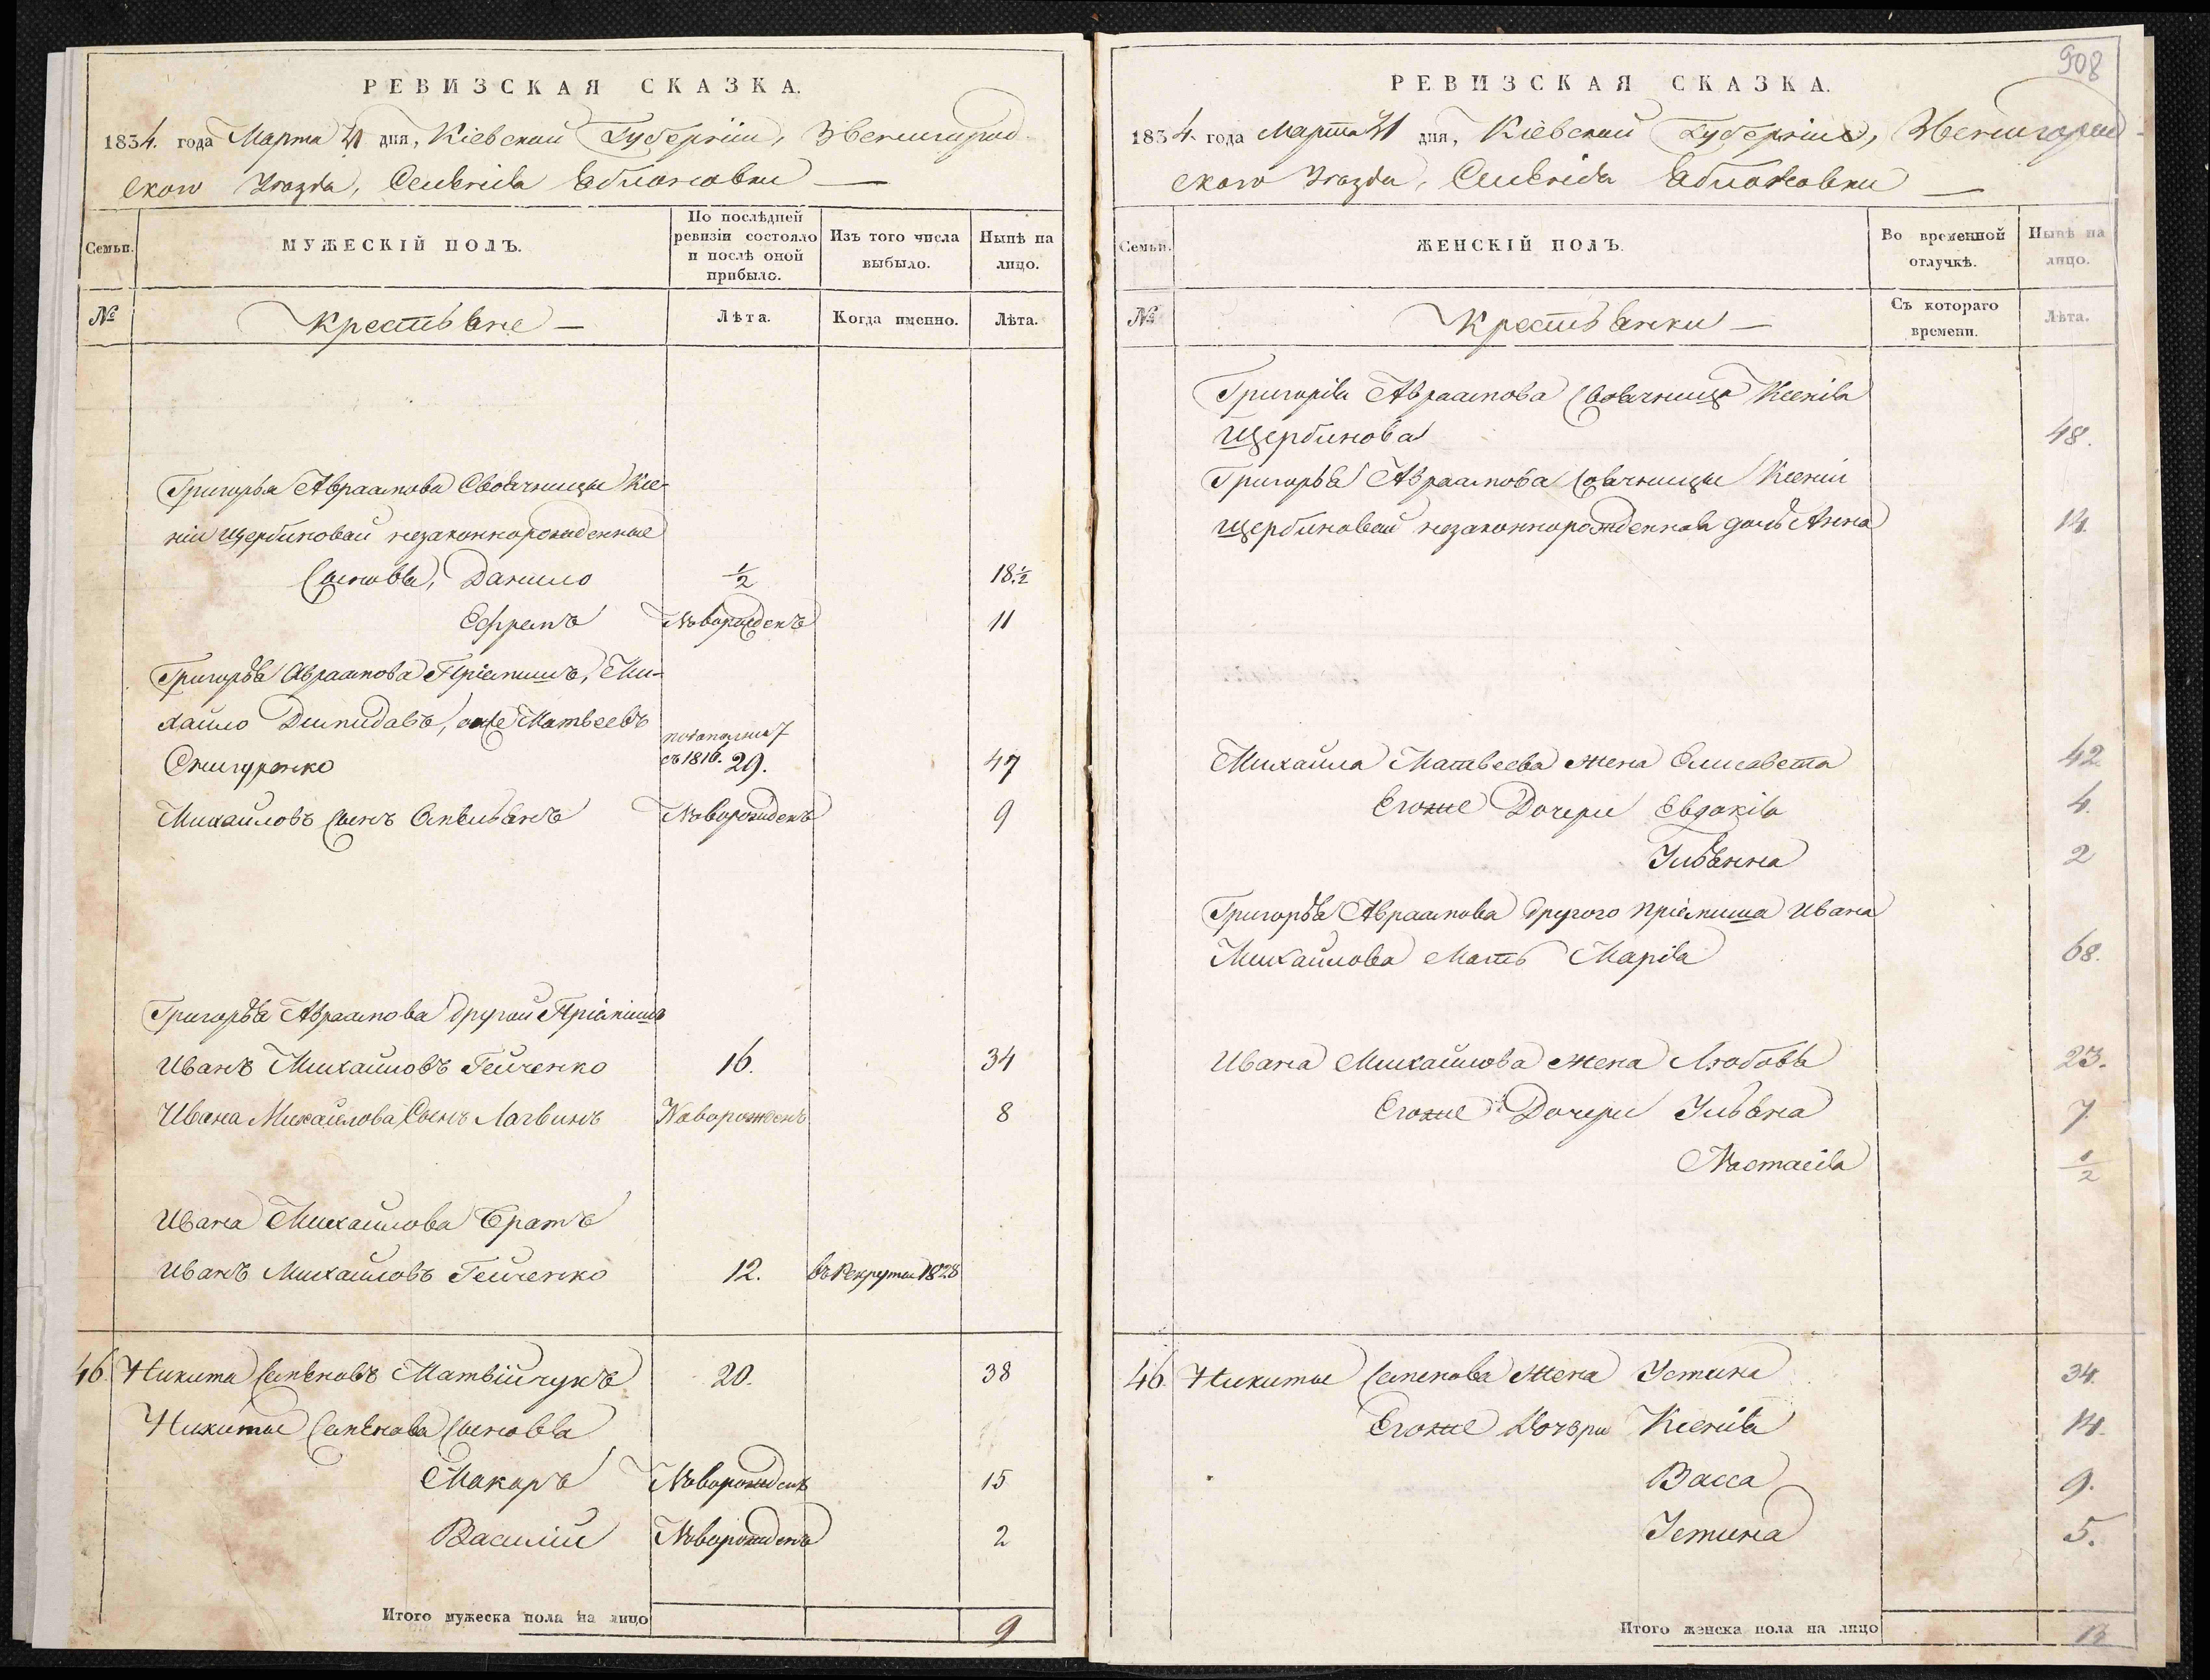 РЕВИЗСКАЯ СКАЗКА.
1834. года Марта 21 дня, Кіевской Губерніи, Звенигород-
ского Уѣзда, Селенія Яблоновки —
Семьи.
МУЖЕСКІЙ ПОЛЪ.
По послѣдней ревизіи состояло и послѣ оной прибыло.
Изъ того числа выбыло.
Нынѣ на лицо.
№
Крестьяне —
Лѣта.
Когда именно.
Лѣта.
Григорья Авраамова Своячницы Ксе-
ніи Щербиновой незаконнорожденные
Сыновья, Данило ½ 18.½
Ефремъ Новорожденъ 11
Григорья Авраамова Пріемышъ, Ми-
хайло Матвеевъ
с 1816. 29. 47
Михайловъ сынъ Емельянъ Новорожденъ 9
Григорья Авраамова другой Пріемышъ
Иванъ Михайловъ Гейченко 16. 34
Ивана Михайлова Сынъ Логвинъ Новорожденъ 8
Ивана Михайлова Братъ
Иванъ Михайловъ Гейченко 12. въ Рекруты 1828
46. Никита Семеновъ Матвійчукъ 20. 38
Никиты Семенова Сыновья
Макаръ Новорожденъ 15
Василій Новорожденъ 2
Итого мужеска пола на лицо 9
908
РЕВИЗСКАЯ СКАЗКА.
1834. года Марта 21 дня, Кіевской Губерніи, Звенигород-
ского Уѣзда, Селенія Яблоновки —
Семьи.
ЖЕНСКІЙ ПОЛЪ.
Во временной отлучкѣ.
Нынѣ на лицо.
№
Крестьянки —
Съ котораго времени.
Лѣта.
Григорія Авраамова Своячница Ксенія
Щербинова 48.
Григорья Авраамова Своячницы Ксеніи
Щербиновой незаконнорожденная дочь Анна 14.
Михайла Матвеева жена Елисавета 42
Его же Дочери Евдокія 4.
Ульянна 2
Григорья Авраамова другого пріемыша Ивана
Михайлова Мать Марія 68.
Ивана Михайлова жена Любовь 23.
Его же Дочери Ульяна 7
Настасія ½
46. Никиты Семенова Жена Устина 34.
Его же Дочери Ксенія 14.
Васса 9.
Устина 5.
Итого женска пола на лицо